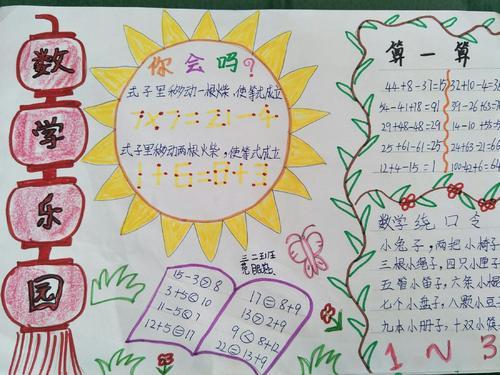 数
学
乐
园
你会吗?
式子里移动一根柴,使等式成立
7×7=21-4
式子里移动两根火柴,使等式成立
1+6=8+3
三二班
15-3>8
3+5<10
11-5<7
12+5=17
17=8+9
13>2+9
9<8+12
22=13+9
算一算
44+8-37=15 32+10-4=3
54-41+78=91 39-26+63=
29+48-48=29 14-10+55=5
25+61-61=25 24+63-21=66
12+4-15=1 100-42+6=64
数学绕口令
小兔子,两把小椅子
三根小绳子,四只小里
五管小笛子,六条小棍
七个小盘子,八颗小豆
九本小册子,十双小筷
1~3